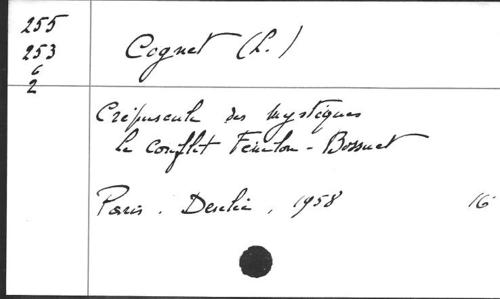 255
253
6
2
Cognet (L.)
Crépuscule des mystiques
le conflit Fénelon - Bossuet
Paris. Desclée, 1958 16